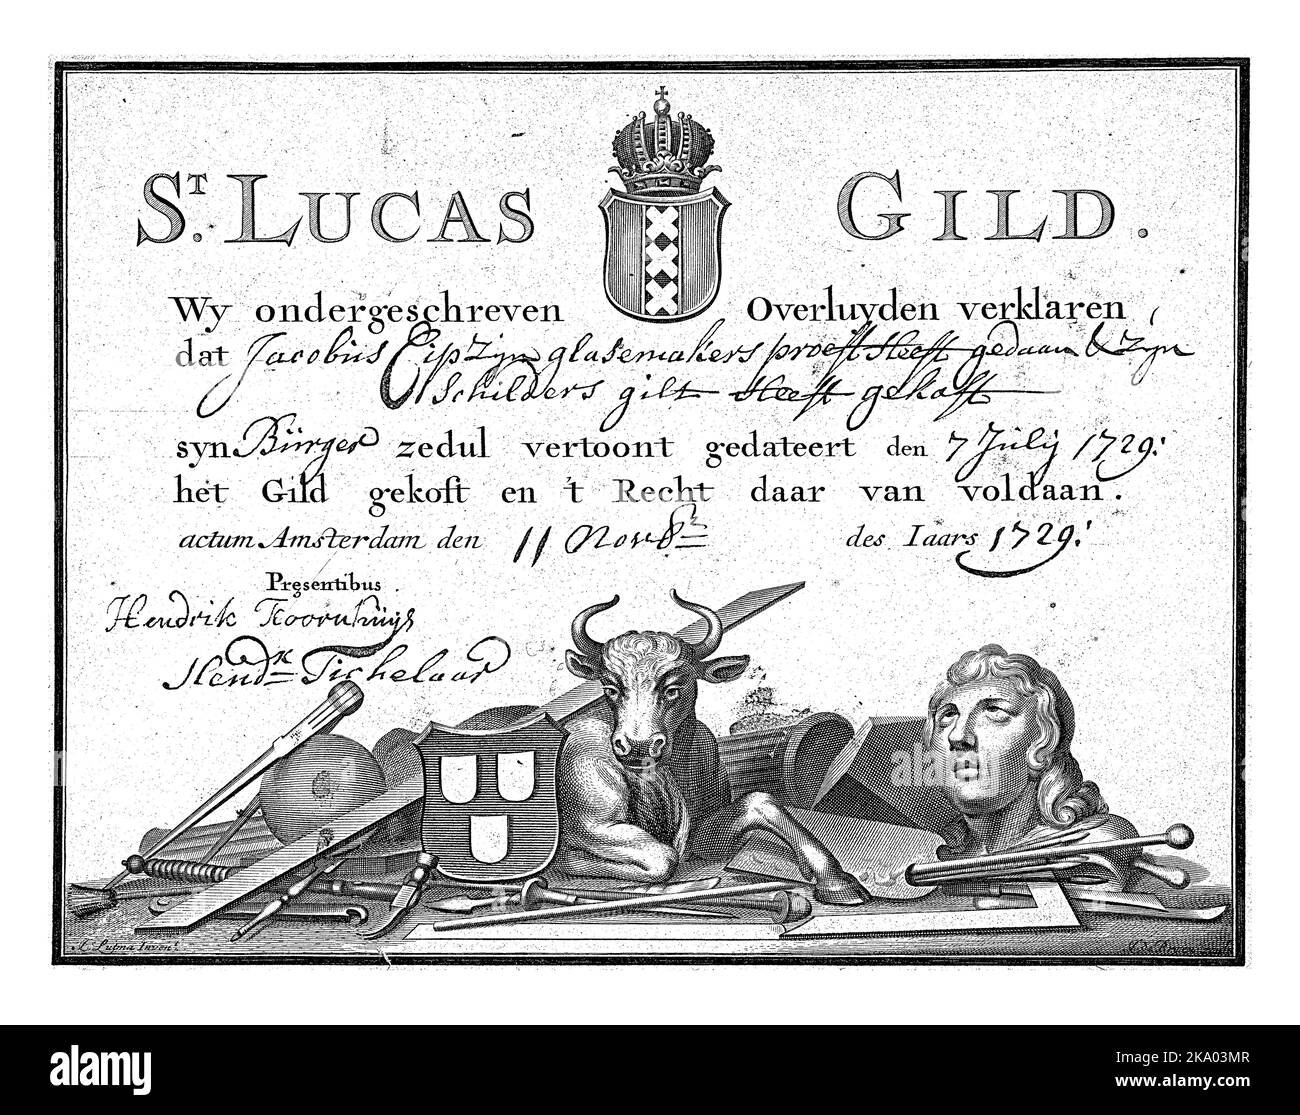 ST. LUCAS GILD.
Wy ondergeschreven Overluyden verklaren
dat Jacobus Eip zijn glasemakers proef heeft gedaan & zyn
Schilders gilt heeft gekoft
syn Burger zedul vertoont gedateert den 7 July 1729:
het Gild gekoft en 't Recht daar van voldaan.
actum Amsterdam den 11 Novbr des Iaars 1729:
Presentibus.
Hendrik Hoornhuijs
Hendk Tichelaar
alamy
Image ID: 2KA03MR
www.alamy.com